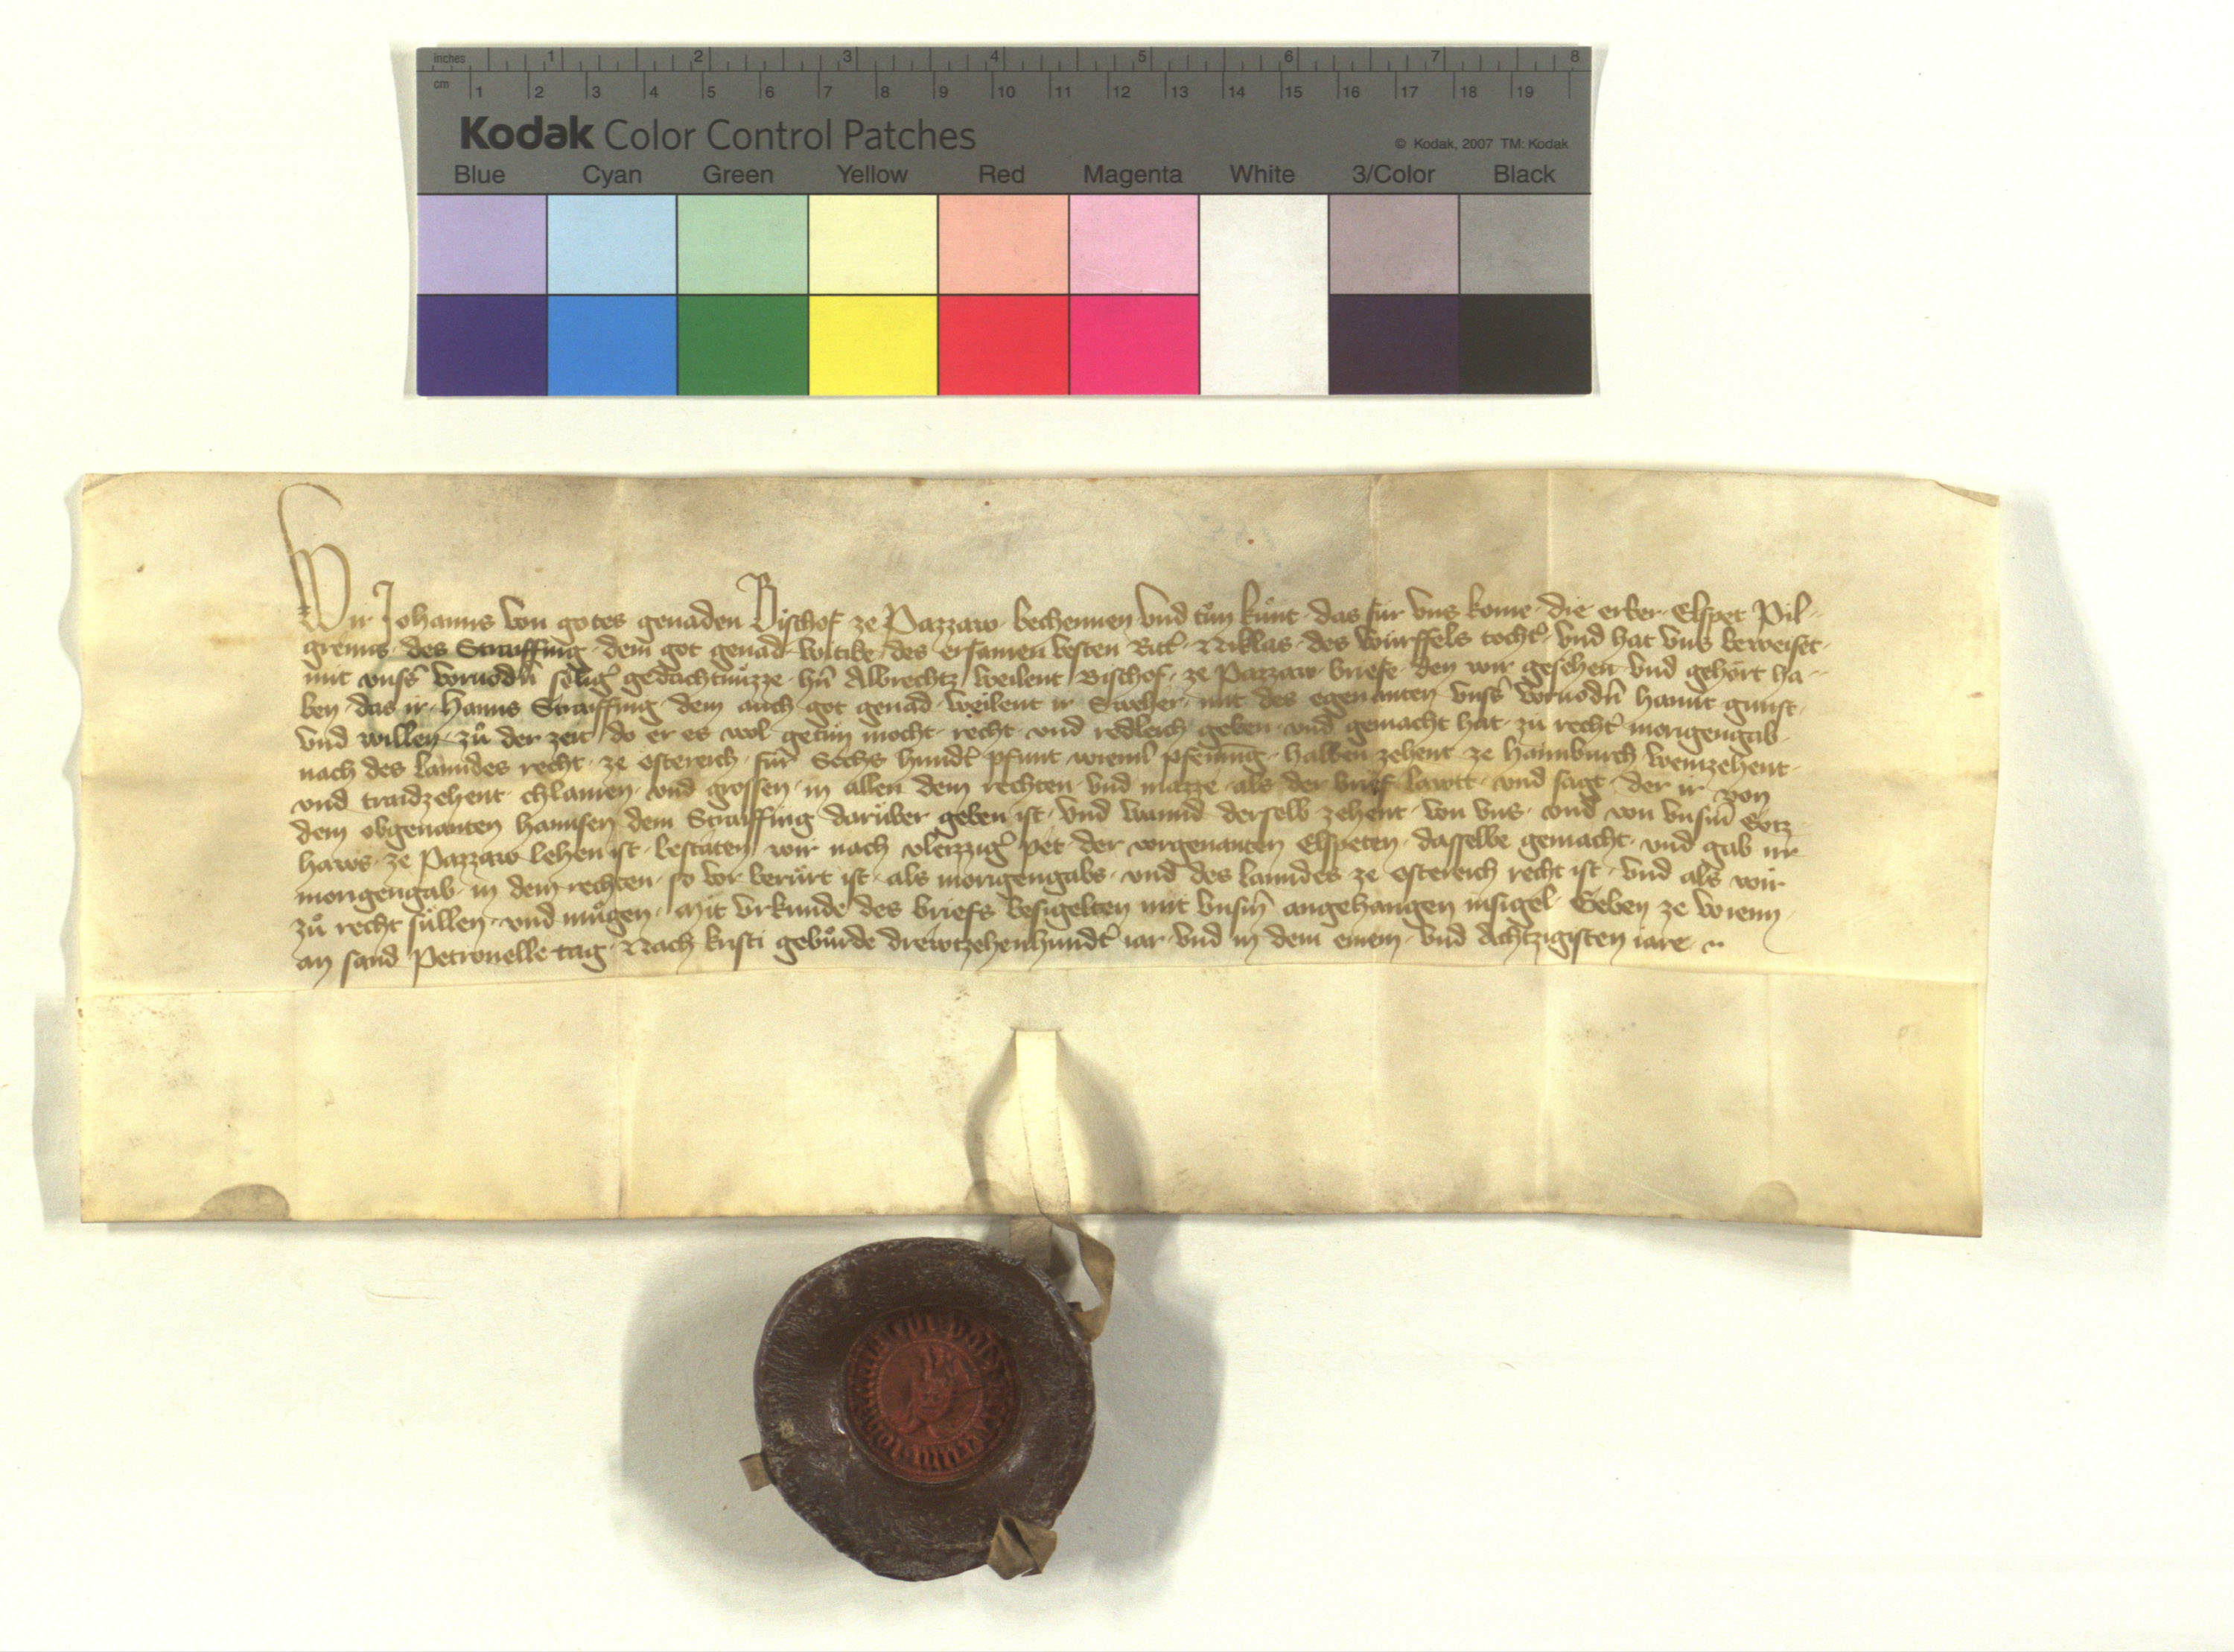 inches 1 2 3 4 5 6 7 8
cm 1 2 3 4 5 6 7 8 9 10 11 12 13 14 15 16 17 18 19
Kodak Color Control Patches
© Kodak, 2007 TM: Kodak
Blue Cyan Green Yellow Red Magenta White 3/Color Black
Wir Johanns von gotes genaden Bischof ze Pazzaw bechennen vnd tůn kůnt das für vns kome die erber Elspet Pil-
greims des Straiffing dem got genad witibe des ersamen vesten Ritt̉ Niklas des Würffels tocht̉ vnd hat vns beweiset
mit vnss̉ voruodn̉ sêlig̉ gedächtnüzze hn̉ Albrechtz weilent Bischof ze Pazzaw briefe den wir gesehen vnd gehört ha-
ben das ir Hanns Straiffing dem auch got genad weilent ir Sweher mit des egenanten vnss̉ voruodn̉ hannt gunst
vnd willen zů der zeit do er es wol getůn mocht recht vnd redleich geben vnd gemacht hat zu recht̉ morgengab
nach des lanndes recht ze Österreich für Sechs hundt̉ phunt wienn̉ pfenning halben zehent ze Haimburch weinzehent
vnd traidzehent chlainen vnd grossen in allen dem rechten vnd mazze als der brief lawtt vnd sagt der ir von
dem obgenanten Hannsen dem Straiffing darüber geben ist vnd wannd derselb zehent von vns vnd von vnsm̉ Gotz-
haws ze Pazzaw lehen ist bestäten wir nach vleizzig̉ pet der vorgenanten Elspeten dasselbe gemacht vnd gab irr
morgengab in dem rechten so vor berürt ist als morgengabs vnd des lanndes ze Osterreich recht ist vnd als wir
zů recht süllen vnd mügen Mit vrkunde des briefs besigelten mit vnsm̉ angehangen insigel Geben ze Wienn
an sand Petronelle tag Nach kristi gebůrde drewtzehenhundt̉ iar vnd in dem einem vnd Achtzigisten iare